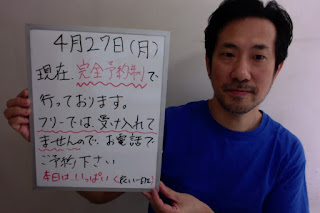 4月27日(月)
現在、完全予約制で
行っております。
フリーでは、受け入れて
ませんので、お電話で
ご予約下さい
本日は、いっぱい